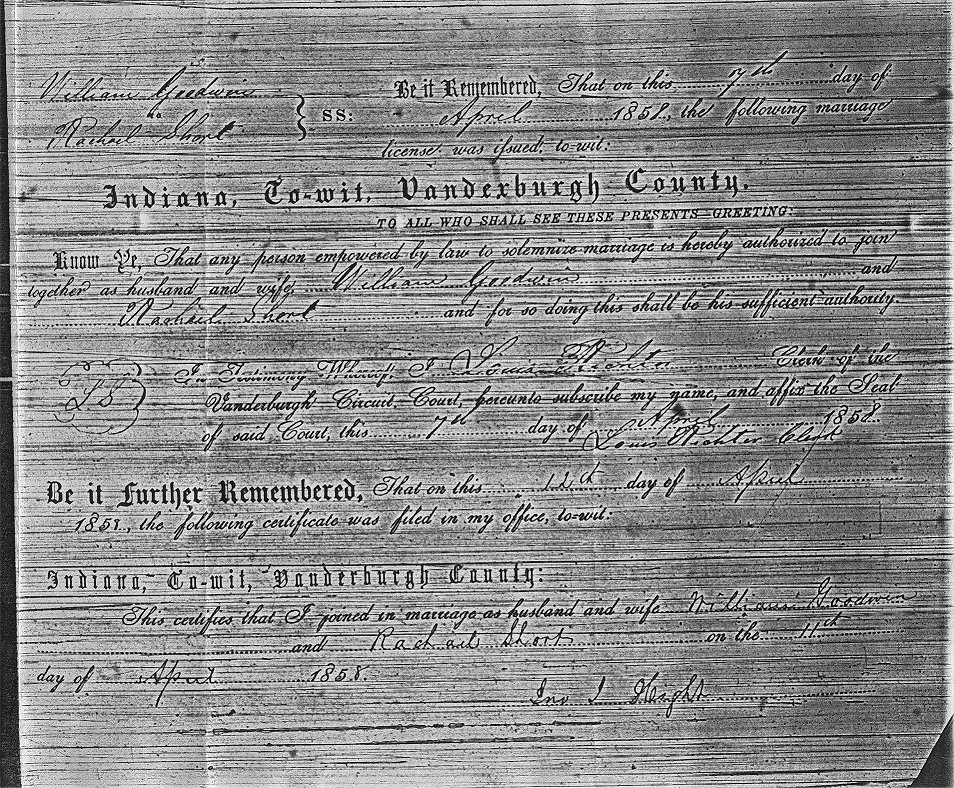 William Goodwin
to
Rachael Short
} SS:
Be it Remembered, That on this 7th day of
April 1858, the following marriage
license was issued, to-wit:
Indiana, To-wit, Vanderburgh County.
TO ALL WHO SHALL SEE THESE PRESENTS—GREETING:
Know Ye, That any person empowered by law to solemnize marriage is hereby authorized to join
together as husband and wife William Goodwin and
Rachael Short and for so doing this shall be his sufficient authority.
In Testimony Whereof, I Louis Richter Clerk of the
LS
Vanderburgh Circuit Court, hereunto subscribe my name, and affix the Seal
of said Court, this 7th day of April 1858
Louis Richter Clerk
Be it Further Remembered, That on this 12th day of April
1858, the following certificate was filed in my office, to-wit:
Indiana, To-wit, Vanderburgh County:
This certifies that I joined in marriage as husband and wife William Goodwin
and Rachael Short on the 11th
day of April 1858.
Jno Hight